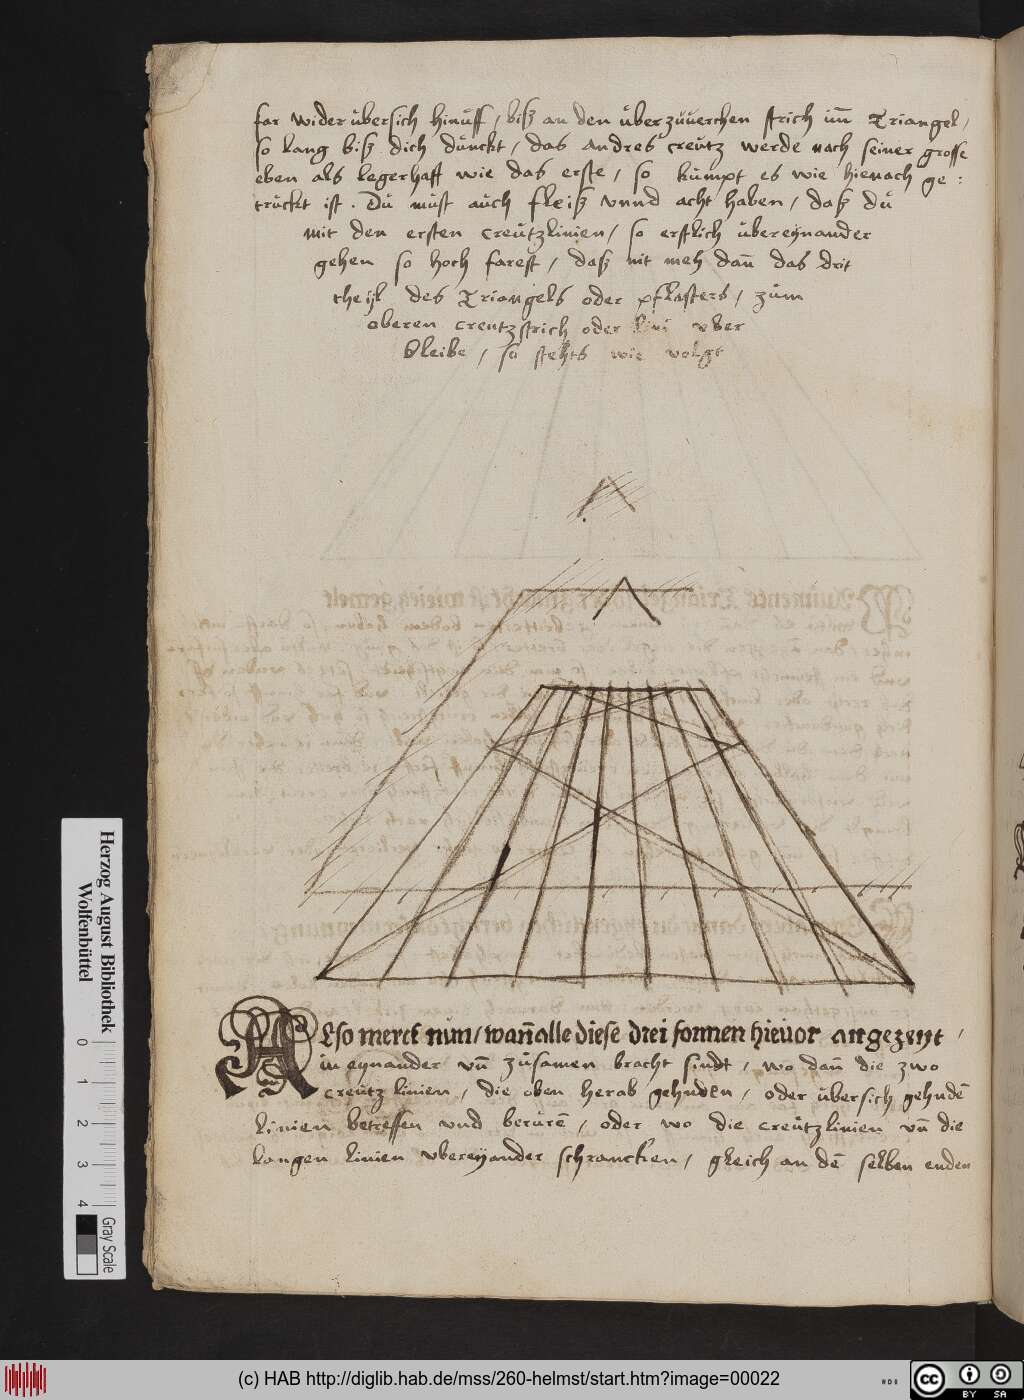 far wider übersich hinuff, biß an den überzwerchen strich im̄ Triangel,
so lang biß dich dunckt, das andres creutz werde nach seiner grosse
eben als legerhafft wie das erste, so kumpt es wie hienach ge:
truckt ist. Du must auch fleiß vnnd acht haben, daß du
mit den ersten creutzlinien, so erstlich übereynander
gehen so hoch farest, daß nit meh dan̄ das drit
theyl des Triangels oder pflasters, zum
oberen creutzstrich oder lini vber
bleibe, so stehts wie volgt
Also merck nun, wan̄ alle diese drei formen hieuor angezeyt,
in eynander vn̄ zusamen bracht sindt, wo dan̄ die zwo
creutz linien, die oben herab gehnden, oder übersich gehndē
linien betreffen vnd berurē, oder wo die creutzlinien vn̄ die
langen linien vbereyander schrancken, gleich an dē selben enden
Herzog August Bibliothek
Wolfenbüttel
0 1 2 3 4
Gray Scale
(c) HAB http://diglib.hab.de/mss/260-helmst/start.htm?image=00022
cc BY SA